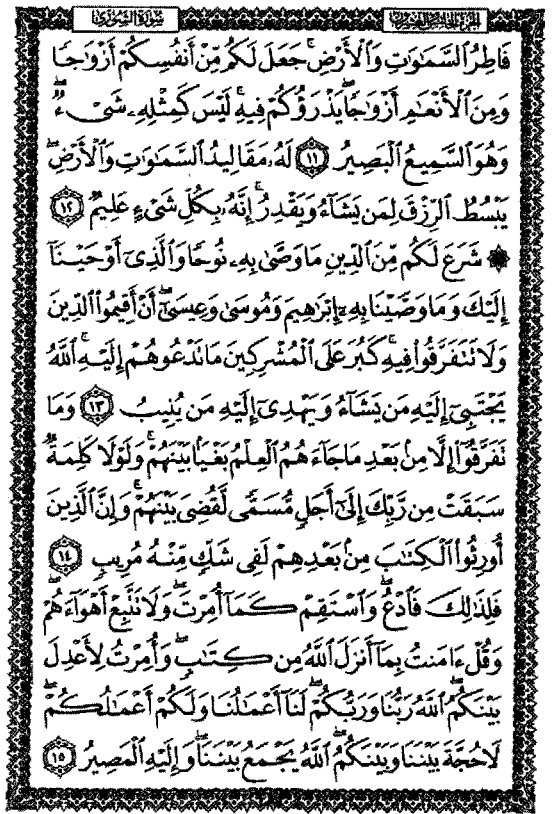 سورة الشورى الجزء الخامس والعشرون
فَاطِرُ السَّمَٰوَٰتِ وَالْأَرْضِ ۚ جَعَلَ لَكُم مِّنْ أَنفُسِكُمْ أَزْوَٰجًا
وَمِنَ الْأَنْعَٰمِ أَزْوَٰجًا ۖ يَذْرَؤُكُمْ فِيهِ ۚ لَيْسَ كَمِثْلِهِۦ شَىْءٌ ۖ
وَهُوَ السَّمِيعُ الْبَصِيرُ ١١ لَهُۥ مَقَالِيدُ السَّمَٰوَٰتِ وَالْأَرْضِ ۖ
يَبْسُطُ الرِّزْقَ لِمَن يَشَآءُ وَيَقْدِرُ ۚ إِنَّهُۥ بِكُلِّ شَىْءٍ عَلِيمٌ ١٢
۞ شَرَعَ لَكُم مِّنَ الدِّينِ مَا وَصَّىٰ بِهِۦ نُوحًا وَالَّذِىٓ أَوْحَيْنَآ
إِلَيْكَ وَمَا وَصَّيْنَا بِهِۦٓ إِبْرَٰهِيمَ وَمُوسَىٰ وَعِيسَىٰٓ ۖ أَنْ أَقِيمُوا۟ الدِّينَ
وَلَا تَتَفَرَّقُوا۟ فِيهِ ۚ كَبُرَ عَلَى الْمُشْرِكِينَ مَا تَدْعُوهُمْ إِلَيْهِ ۚ اللَّهُ
يَجْتَبِىٓ إِلَيْهِ مَن يَشَآءُ وَيَهْدِىٓ إِلَيْهِ مَن يُنِيبُ ١٣ وَمَا
تَفَرَّقُوٓا۟ إِلَّا مِنۢ بَعْدِ مَا جَآءَهُمُ الْعِلْمُ بَغْيًۢا بَيْنَهُمْ ۚ وَلَوْلَا كَلِمَةٌ
سَبَقَتْ مِن رَّبِّكَ إِلَىٰٓ أَجَلٍ مُّسَمًّى لَّقُضِىَ بَيْنَهُمْ ۚ وَإِنَّ الَّذِينَ
أُورِثُوا۟ الْكِتَٰبَ مِنۢ بَعْدِهِمْ لَفِى شَكٍّ مِّنْهُ مُرِيبٍ ١٤
فَلِذَٰلِكَ فَادْعُ ۖ وَاسْتَقِمْ كَمَآ أُمِرْتَ ۖ وَلَا تَتَّبِعْ أَهْوَآءَهُمْ ۖ
وَقُلْ ءَامَنتُ بِمَآ أَنزَلَ اللَّهُ مِن كِتَٰبٍ ۖ وَأُمِرْتُ لِأَعْدِلَ
بَيْنَكُمُ ۖ اللَّهُ رَبُّنَا وَرَبُّكُمْ ۖ لَنَآ أَعْمَٰلُنَا وَلَكُمْ أَعْمَٰلُكُمْ ۖ
لَا حُجَّةَ بَيْنَنَا وَبَيْنَكُمُ ۖ اللَّهُ يَجْمَعُ بَيْنَنَا ۖ وَإِلَيْهِ الْمَصِيرُ ١٥